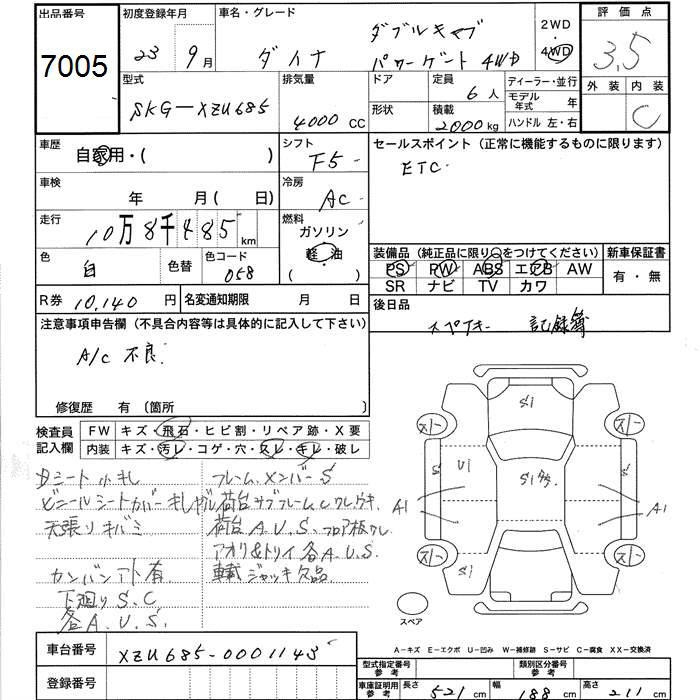 出品番号
7005
初度登録年月
23年 9月
車名・グレード
ダイナ ダブルキャブ
パワーゲート 4WD
2WD・4WD
評価点
3.5
外装 内装
C
型式
SKG-XZU685
排気量
4000 CC
ドア
形状
定員
6人
積載
2000kg
ディーラー・並行
モデル年式 年
ハンドル 左・右
車歴
自家用・( )
シフト
F5
セールスポイント(正常に機能するものに限ります)
ETC
車検
年 月(日)
冷房
AC
走行
10万8千485km
燃料
ガソリン
軽油
( )
色
白
色替
色コード
058
装備品(純正品に限り○をつけてください)
PS PW ABS エアB AW
SR ナビ TV カワ
新車保証書
有・無
R券 10,140円
名変通知期限 月 日
後日品
スペアキー 記録簿
注意事項申告欄(不具合内容等は具体的に記入して下さい)
A/C 不良
修復歴 有 (箇所 )
検査員記入欄
FW キズ・飛石・ヒビ割・リペア跡・X要
内装 キズ・汚レ・コゲ・穴・スレ・キレ・破レ
Dシート小キレ
ビニールシートカバーキレ
天張りキバミ
カンバンアト有
下廻りS.C
各A.U.S.
フレーム.メンバーS
荷台サブフレームCワレ.ウキ.
荷台A.U.S.フロア板ワレ
アオリ&トリイ各A.U.S.
車載ジャッキ欠品
S1
スリー
スリー
S
U1
S1
S
A1
A1
スリー
スリー
S1
スペア
A-キズ E-エクボ U-凹み W-補修跡 S-サビ C-腐食 XX-交換済
車台番号 XZU685-0001143
登録番号
型式指定番号参考
類別区分番号参考
車庫証明用参考 長さ 521cm 幅 188cm 高さ 211cm